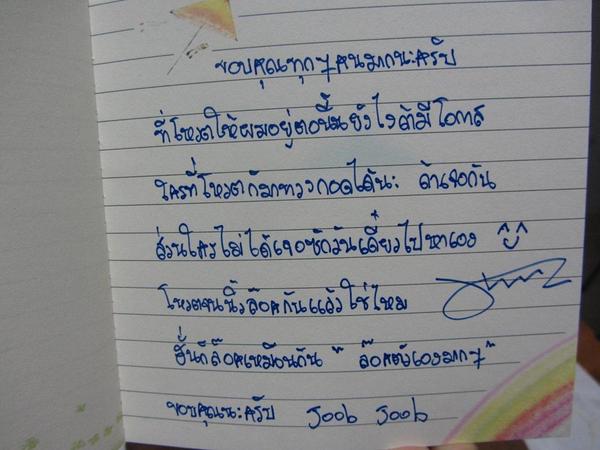 ขอบคุณทุกๆคนมากนะครับ
ที่โหวตให้ผมอยู่ตอนนี้ยังไงถ้ามีโอกาส
ใครที่โหวตก้มาทวงกอดได้นะ ถ้าเจอกัน
ส่วนใครไม่ได้เจอซักวันเดี๋ยวไปหาเอง ^^
โหวตจนนิ้วล๊อคกันแล้วใช่ไหม
ฮั่นก็ล๊อคเหมือนกัน " ล๊อคตัวเองมากๆ"
ขอบคุณนะครับ Joob Joob